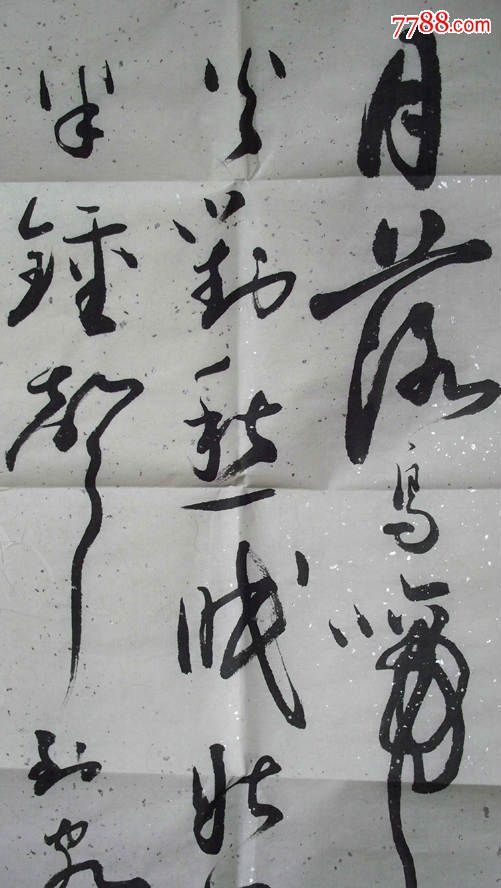 7788.com
月落烏啼
火對愁眠姑
半鐘聲到客